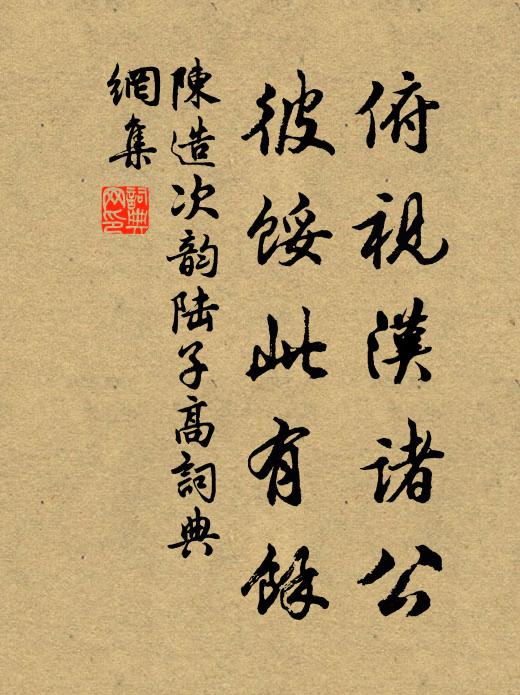 俯視漢諸公
彼餒此有餘
陳造次韵陆子高詞典
網集
詞典
网印